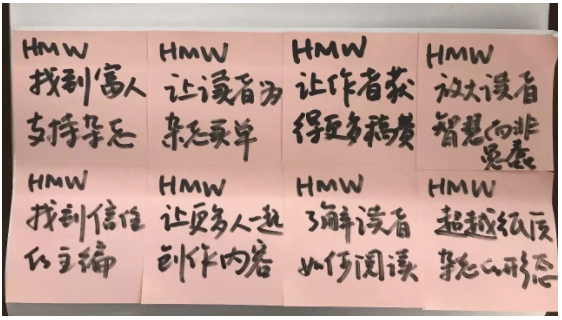 HMW
找到富人
支持杂志
HMW
让读者为
杂志买单
HMW
让作者获
得更多稿费
HMW
放大读者
智慧而非
愚蠢
HMW
找到信任
的主编
HMW
让更多人一起
创作内容
HMW
了解读者
如何阅读
HMW
超越纸质
杂志的形态